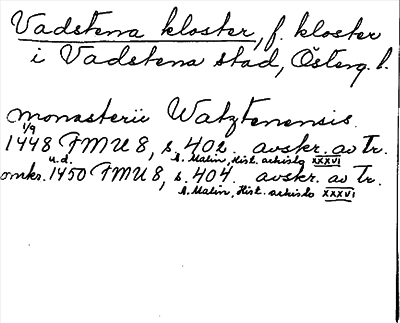 Vadstena kloster, f. kloster
i Vadstena stad, Österg. l.
monasterii Watztenensis.
1/9
1448 FMU 8, s. 402. avskr. av tr.
A. Malin, Hist. arkisto XXXVI
u.d.
omkr. 1450 FMU 8, s. 404. avskr. av tr.
A. Malin, Hist. arkisto XXXVI